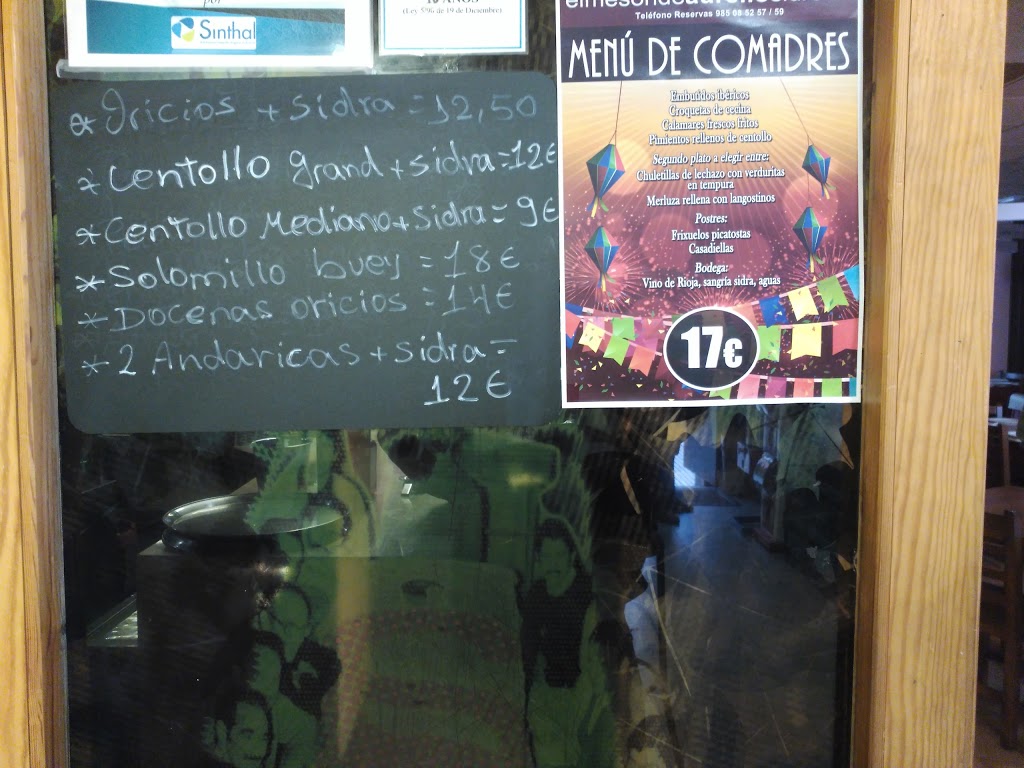 por
Sinthal
(Ley 5/96 de 19 de Diciembre)
* Oricios + sidra = 12,50
* Centollo grand + sidra = 12€
* Centollo Mediano + sidra = 9€
* Solomillo buey = 18€
* Docenas oricios = 14€
* 2 Andaricas + sidra =
12€
Teléfono Reservas 985 08 52 57 / 59
MENÚ DE COMADRES
Embutidos ibéricos
Croquetas de cecina
Calamares frescos fritos
Pimientos rellenos de centollo
Segundo plato a elegir entre:
Chuletillas de lechazo con verduritas
en tempura
Merluza rellena con langostinos
Postres:
Frixuelos picatostas
Casadiellas
Bodega:
Vino de Rioja, sangría sidra, aguas
17€